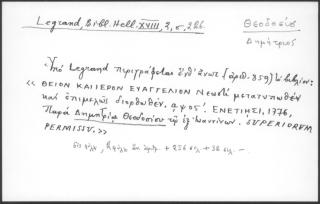 Legrand, Bibl. Hell. XVIII, 2, σ. 226
Θεοδοσίου
Δημήτριος
Ὑπὸ Legrand περιγράφεται ἐνθ' ἄνωτ. (ἀριθ. 859) τὸ βιβλίον:
« ΘΕΙΟΝ ΚΑΙ ΙΕΡΟΝ ΕΥΑΓΓΕΛΙΟΝ Νεωστὶ μετατυπωθὲν
καὶ ἐπιμελῶς διορθωθέν. αψοϛ'. ΕΝΕΤΙΗΣΙ, 1776,
Παρὰ Δημητρίῳ Θεοδοσίου τῷ ἐξ Ἰωαννίνων. SUPERIORUM
PERMISSU. »
+ 256 σελ. + 38 σελ. –